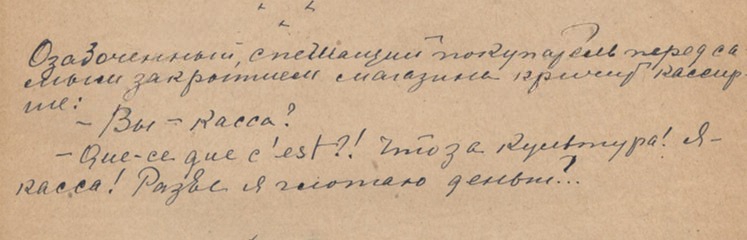 Озабоченный, спешащий покупатель перед са
мым закрытием магазина кричит кассир
ше:
– Вы – касса?
– Que-ce que c'est?! Что за культура! Я –
касса! Разве я глотаю деньги?..